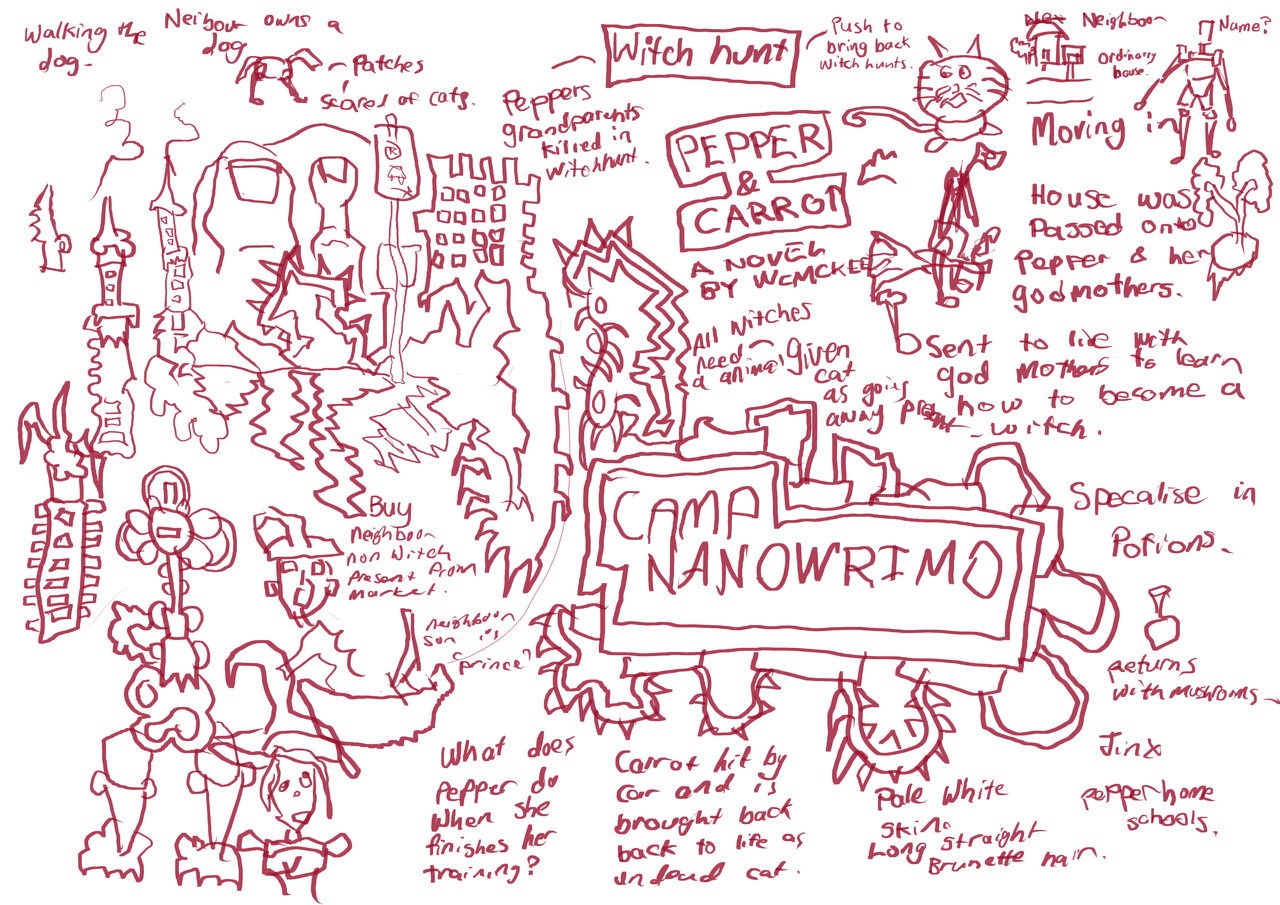 Walking the
dog.
Neibour owns a
dog
Patches
scared of cats.
Witch hunt
Push to
bring back
witch hunts.
New Neighbour
ordinary
house.
Name?
Moving in
Peppers
grandparents
killed in
witchhunt.
PEPPER
&
CARROT
A NOVEL
BY WCMCKEE
House was
Passed onto
Pepper & her
godmothers.
All Witches
need
a animal
given
cat
as going
away present
Sent to live with
god mothers to learn
how to become a
witch.
CAMP
NANOWRIMO
Specalise in
Potions.
Buy
neighbour
non witch
present from
market.
neighbour
son is
prince?
returns
with mushrooms
Jinx
pepper home
schools.
What does
pepper do
when she
finishes her
training?
Carrot hit by
car and is
brought back
back to life as
undead cat.
Pale White
skin.
Long straight
Brunette hair.